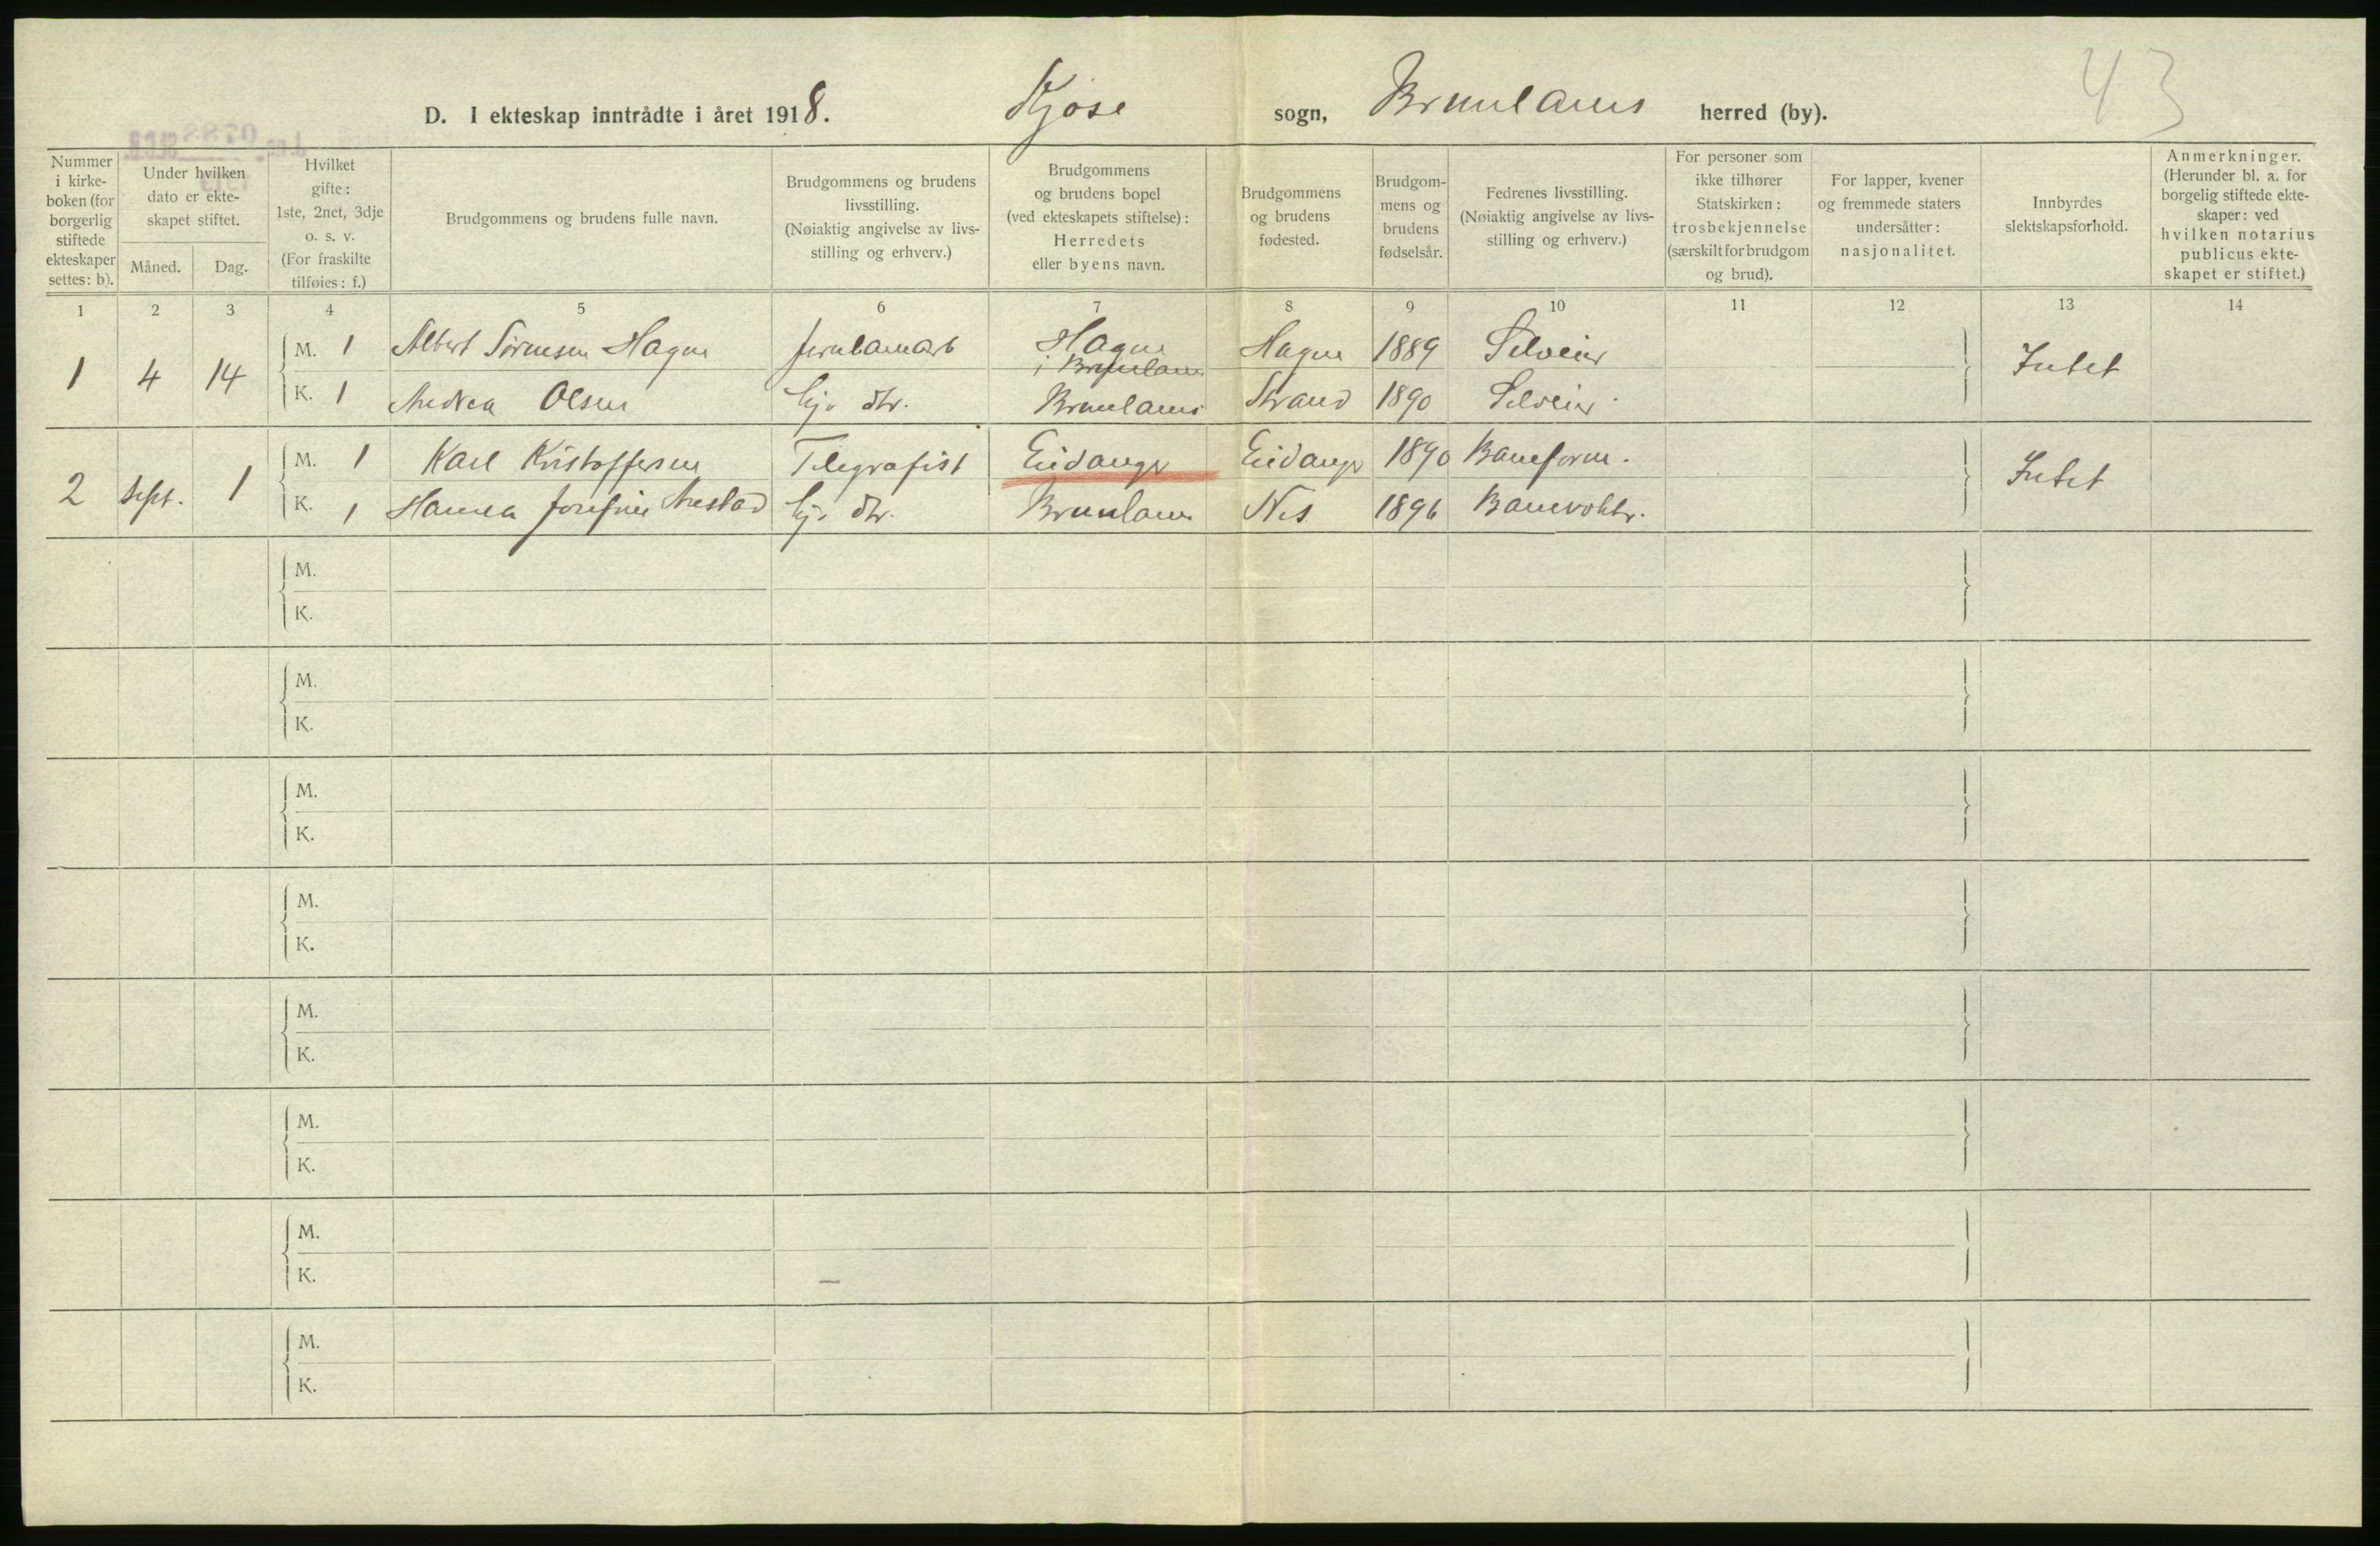 43
D. I ekteskap inntrådte i året 1918. Kjose sogn, Brunlanes herred (by).
Nummer i kirkeboken (for borgerlig stiftede ekteskaper settes: b).
Under hvilken dato er ekteskapet stiftet.
Måned. Dag.
Hvilket gifte: 1ste, 2net, 3dje o. s. v. (For fraskilte tilføies: f.)
Brudgommens og brudens fulle navn.
Brudgommens og brudens livsstilling. (Nøiaktig angivelse av livsstilling og erhverv.)
Brudgommens og brudens bopel (ved ekteskapets stiftelse): Herredets eller byens navn.
Brudgommens og brudens fødested.
Brudgommens og brudens fødselsår.
Fedrenes livsstilling. (Nøiaktig angivelse av livsstilling og erhverv.)
For personer som ikke tilhører Statskirken: trosbekjennelse (særskilt for brudgom og brud).
For lapper, kvener og fremmede staters undersåtter: nasjonalitet.
Innbyrdes slektskapsforhold.
Anmerkninger. (Herunder bl. a. for borgelig stiftede ekteskaper: ved hvilken notarius publicus ekteskapet er stiftet.)
1 2 3 4 5 6 7 8 9 10 11 12 13 14
1 4 14 M. 1 Albert Sørensen Hagne Jernbanearb Hagne i Brunlanes Hagne 1889 Selveier Intet
K. 1 Andrea Olsen hj. dtr. Brunlanes Strand 1890 Selveier
2 Sept. 1 M. 1 Karl Kristoffersen Telegrafist Eidanger Eidanger 1890 Baneform. Intet
K. 1 Hanna Josefine Anestad hj. dtr. Brunlanes Nes 1896 Banevoktr.
M.
K.
M.
K.
M.
K.
M.
K.
M.
K.
M.
K.
M.
K.
M.
K.